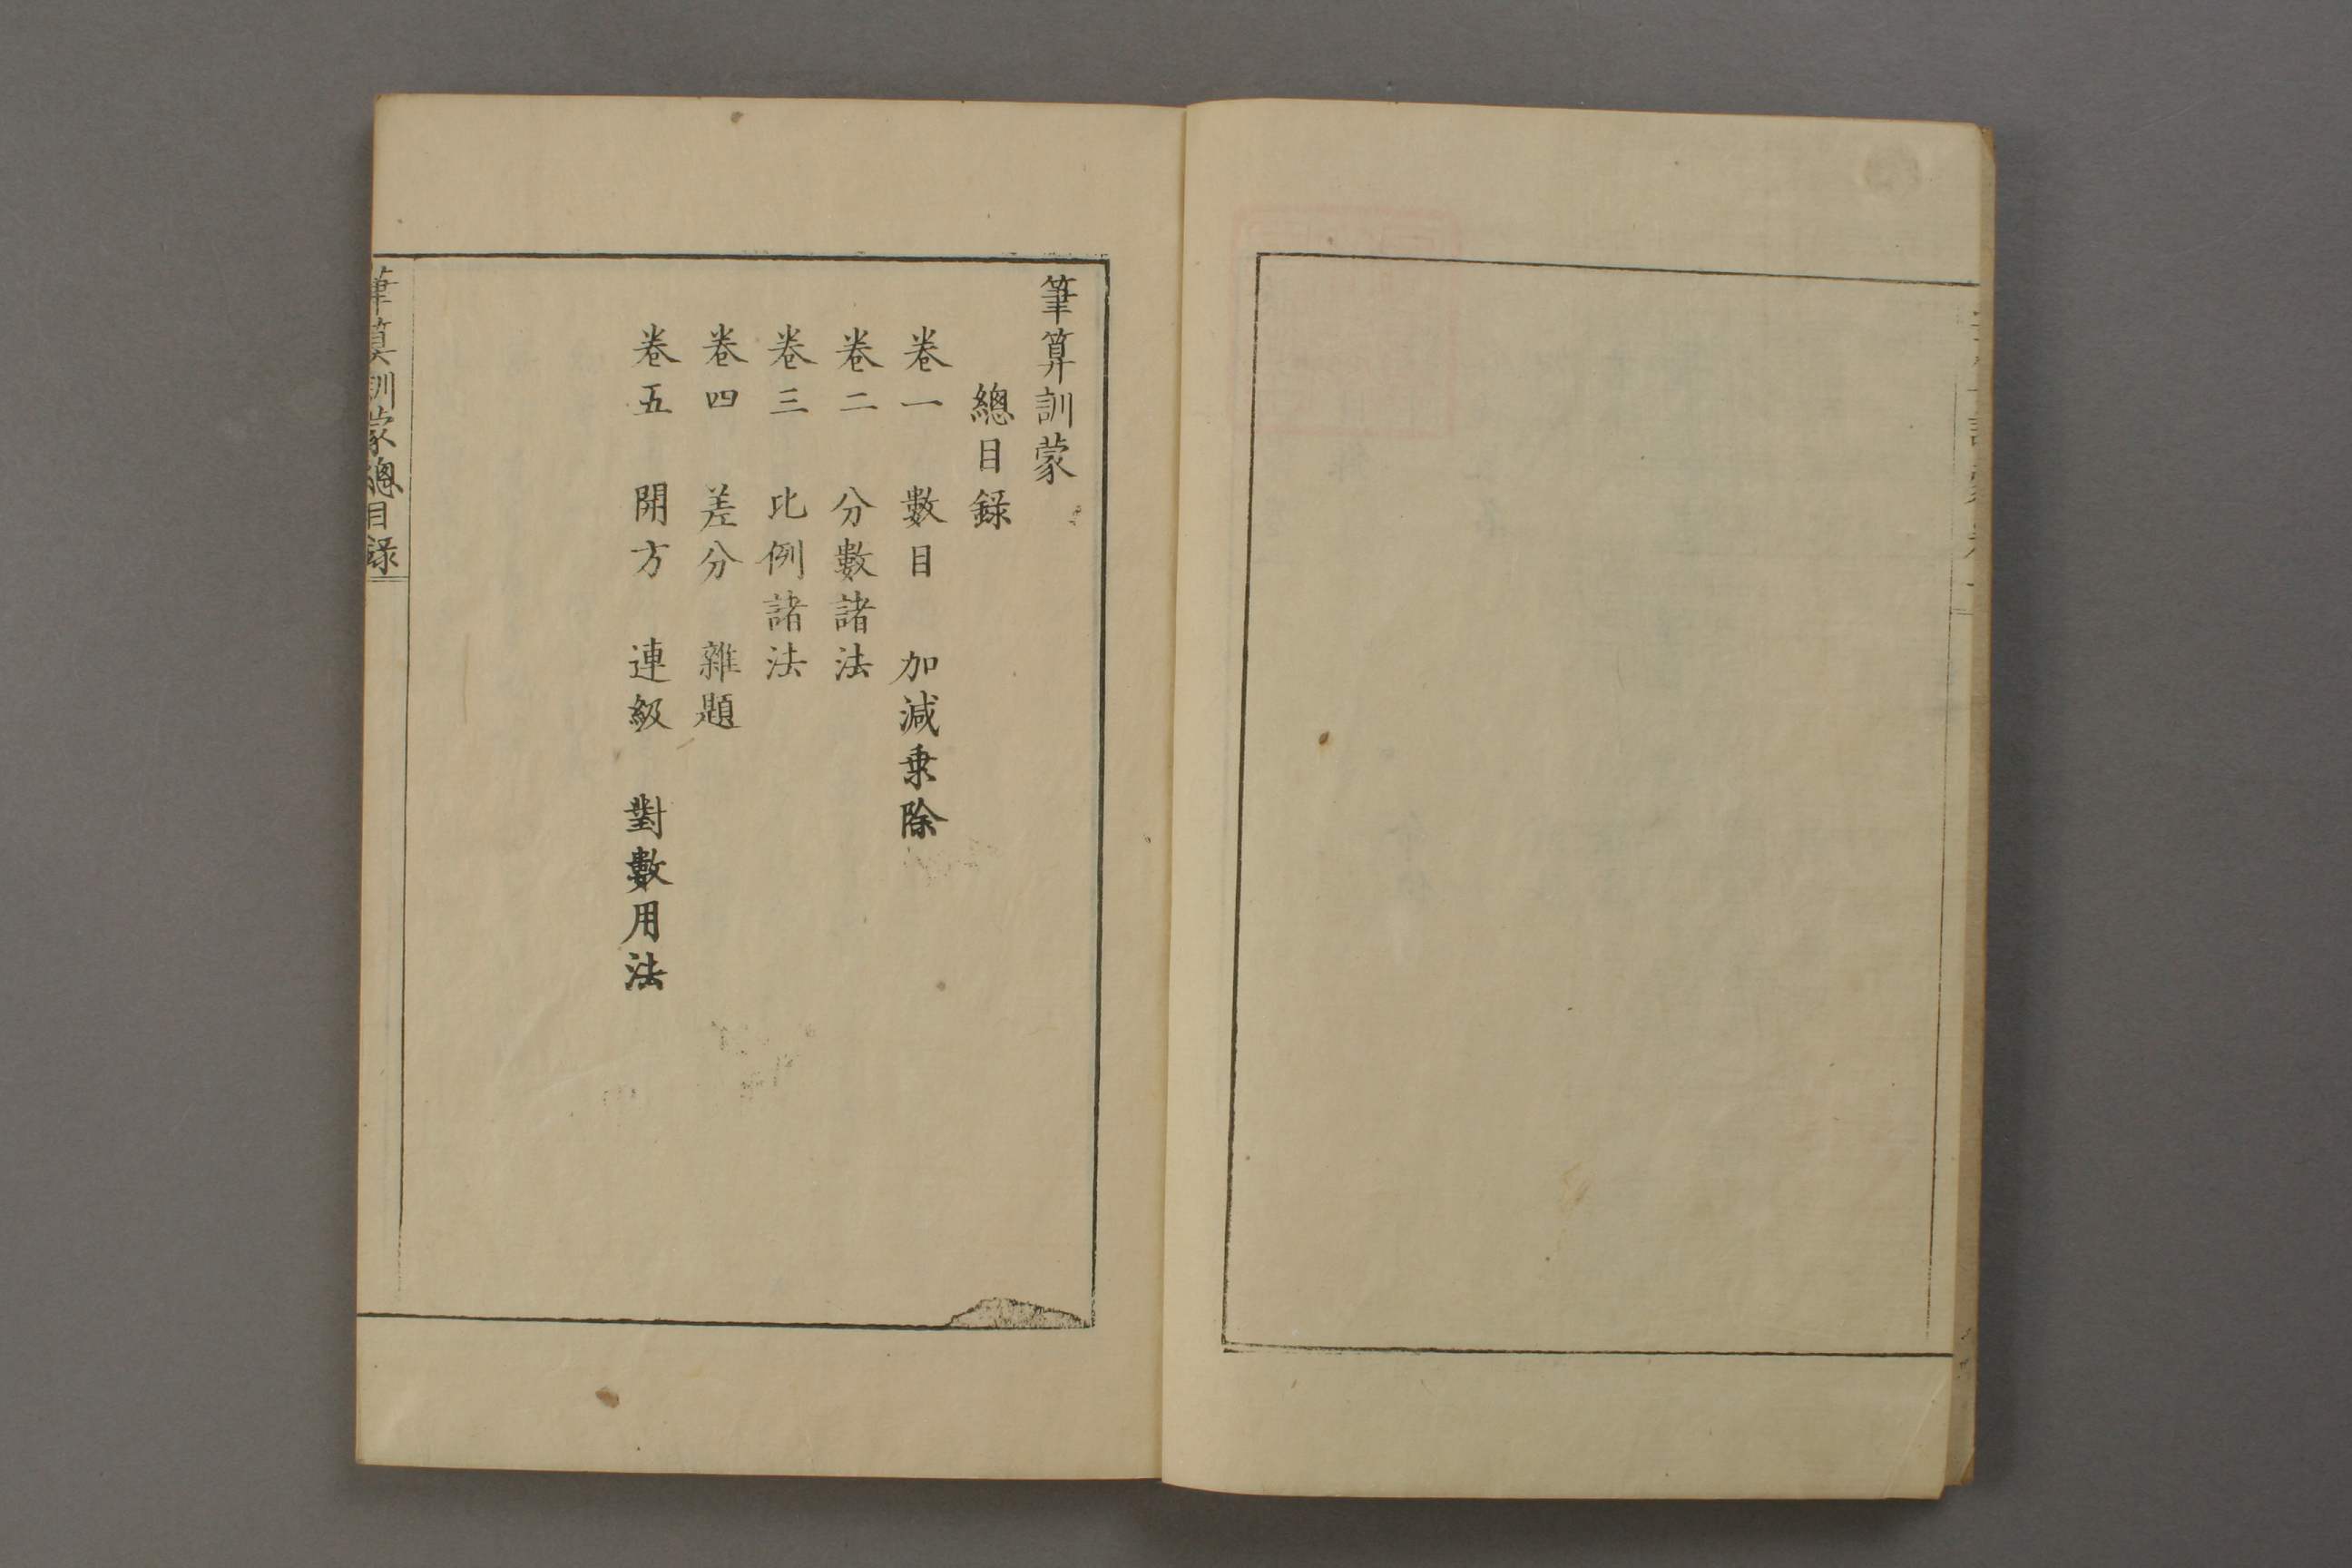 筆算訓蒙
總目録
卷一 數目 加減乗除
卷二 分數諸法
卷三 比例諸法
卷四 差分 雜題
卷五 開方 連級 對數用法
筆算訓蒙總目録